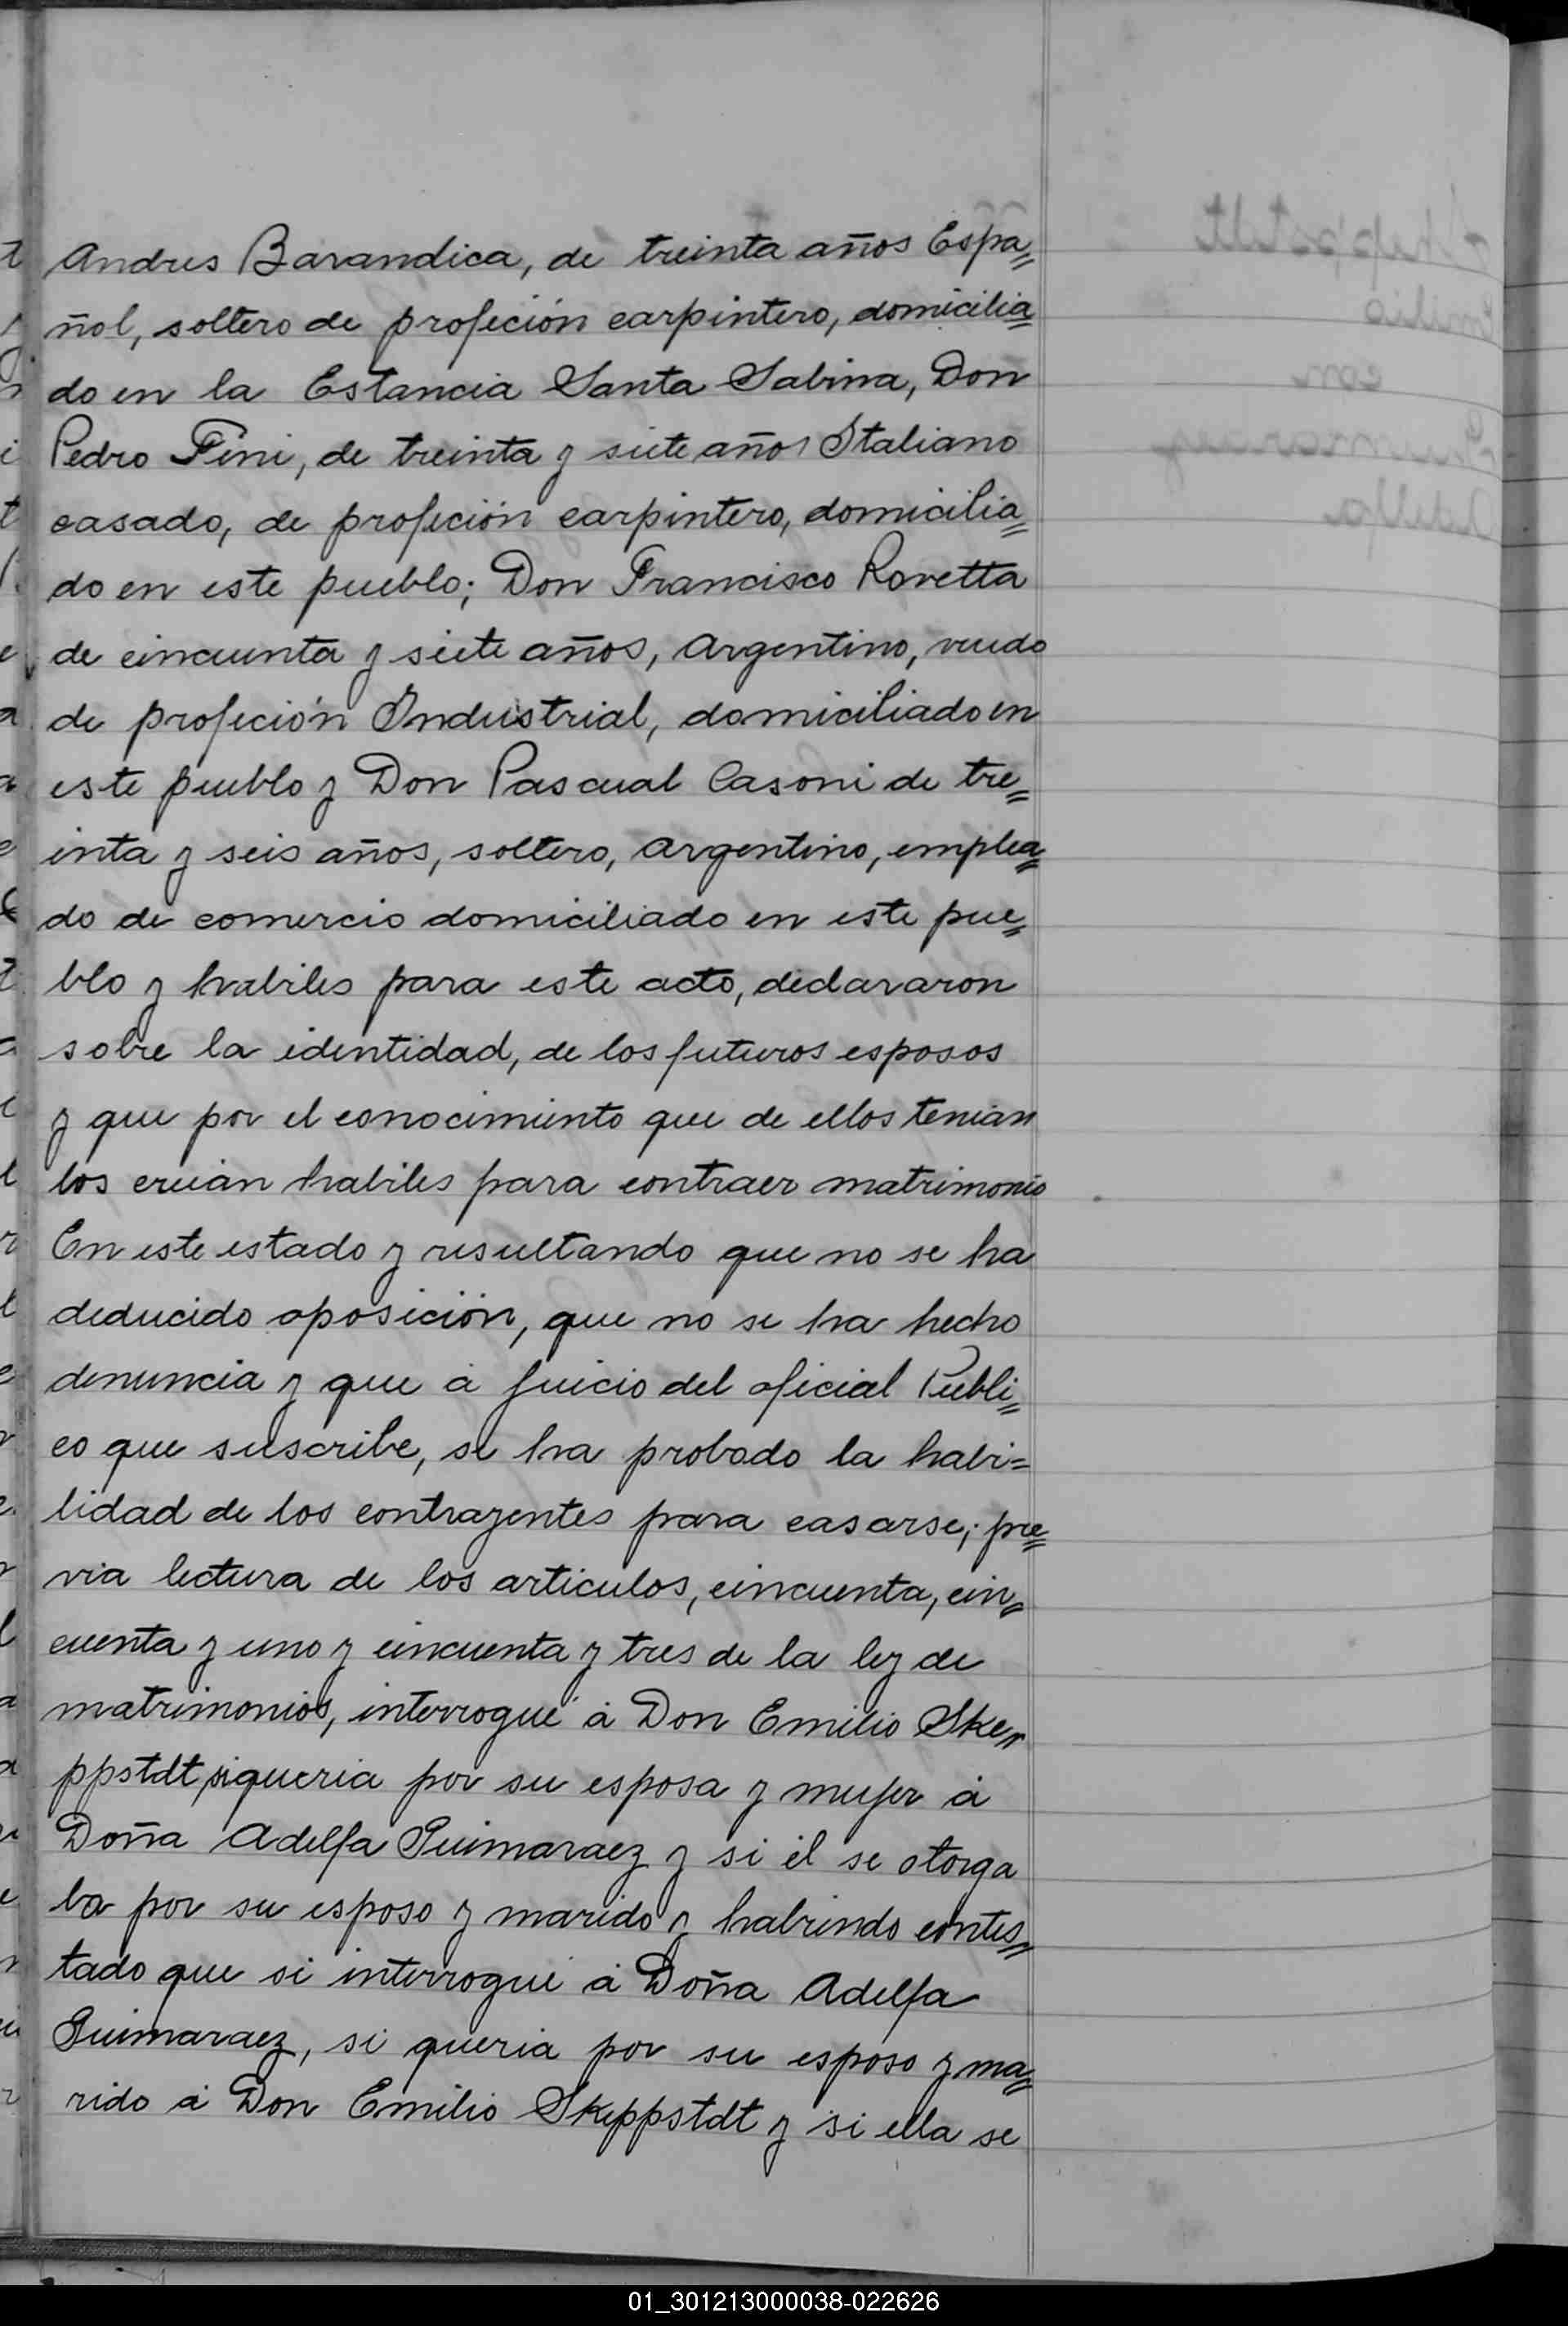 Andres Barandica, de treinta años Espa=
ñol, soltero de profeción carpintero, domicilia=
do en la Estancia Santa Sabina, Don
Pedro Fini, de treinta y siete años Italiano
casado, de profeción carpintero, domicilia=
do en este pueblo; Don Francisco Rovetta
de cincuenta y siete años, Argentino, viudo
de profeción Industrial, domiciliado en
este pueblo y Don Pascual Casoni de tre=
inta y seis años, soltero, Argentino, emplea=
do de comercio domiciliado en este pue=
blo y habiles para este acto, declararon
sobre la identidad, de los futuros esposos
y que por el conocimiento que de ellos tenian
los creian habiles para contraer matrimonio
En este estado y resultando que no se ha
deducido oposición, que no se ha hecho
denuncia y que á juicio del oficial Publi=
co que suscribe, se ha probado la habi=
lidad de los contrayentes para casarse; pre=
via lectura de los articulos, cincuenta, cin=
cuenta y uno y cincuenta y tres de la ley de
matrimonios, interrogué á Don Emilio Ske=
ppstdt, si queria por su esposa y mujer á
Doña Adelfa Guimaraez y si él se otorga
ba por su esposo y marido y habiendo contes=
tado que si interrogué á Doña Adelfa
Guimaraez, si queria por su esposo y ma=
rido á Don Emilio Skeppstdt y si ella se
01_301213000038-022626